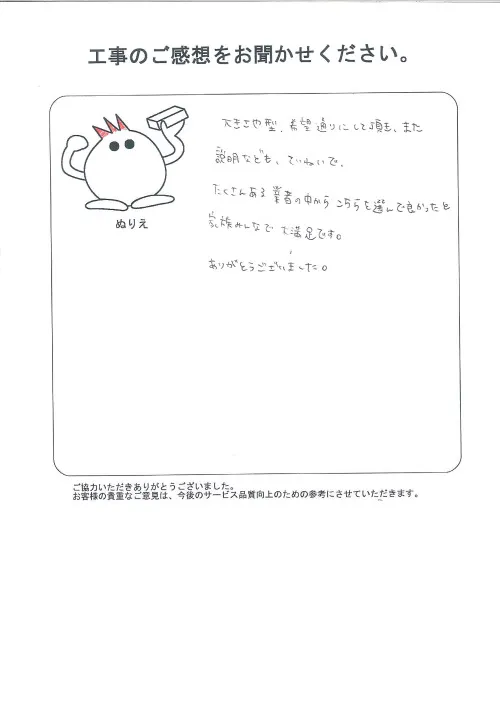 工事のご感想をお聞かせください。
ぬりえ
大きさや型、希望通りにして頂き、また
説明なども、ていねいで、
たくさんある業者の中からこちらを選んで良かったと
家族みんなで大満足です。
ありがとうございました。
ご協力いただきありがとうございました。
お客様の貴重なご意見は、今後のサービス品質向上のための参考にさせていただきます。